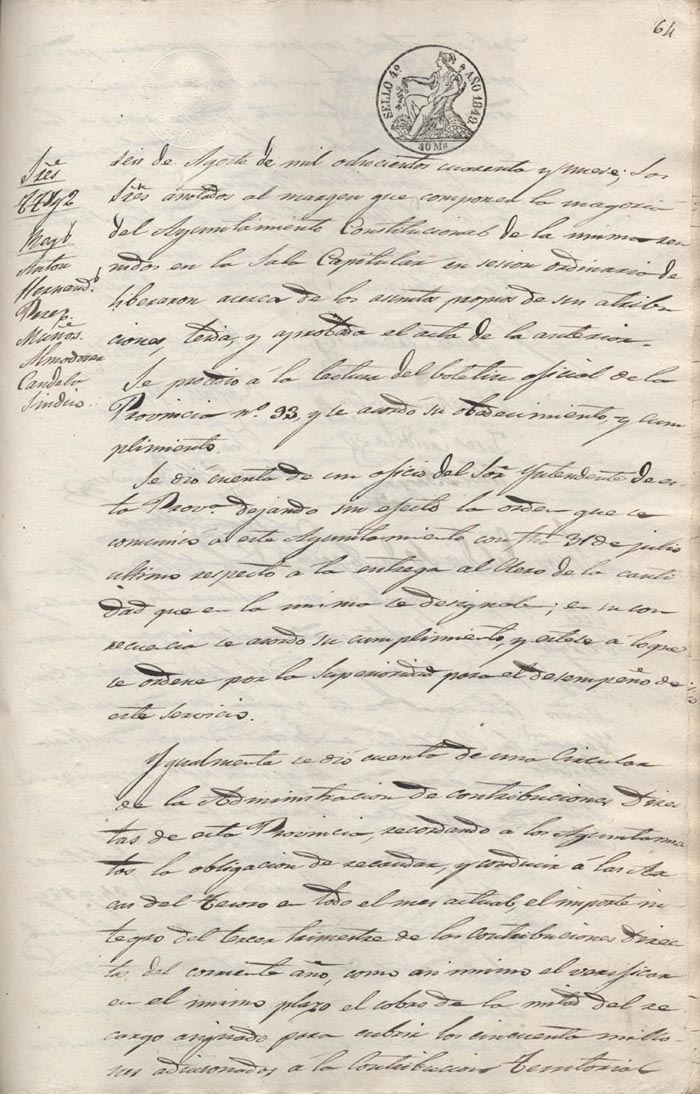 64
SELLO 4º AÑO 1849.
40 Ms
Sres
Anton
Hernandz
Perez
Muños.
Almodovar
Candela
Sindico.
seis de Agosto de mil ochocientos cuarenta y nueve; Los
Sres anotados al margen que componen la mayoria
del Ayuntamiento Constitucional de la misma reu
nidos en la Sala Capitular en sesion ordinaria de
liberaron acerca de los asuntos propios de sus atribu
ciones, leida, y aprobada el acta de la anterior.
Se procedio á la lectura del boletin oficial de la
Provincia nº. 93, y se acordó su obedecimiento, y cum
plimiento.
Se dio cuenta de un oficio del Sor Yntendente de es
ta Prova dejando sin efecto la orden que se
comunicó a este Ayuntamiento con fha 31 de julio
ultimo respecto a la entrega al Clero de la canti
dad que en la misma se designaba; en su con
secuecia se acordo su cumplimiento, y estese a loque
se ordene por la Superioridad para el desempeño de
este servicio.
Ygualmente se dió cuenta de una Circular
de la Administracion de contribuciones Direc
tas de esta Provincia, recordando a los Ayuntamie
tos la obligacion de recaudar, y conducir á las Ar
cas del tesoro en todo el mes actual, el importe in
tegro del tercer trimestre de las Contribuciones Direc
tas del corriente año, como asi mismo el verificar
en el mismo plazo el cobro de la mitad del re
cargo asignado para cubrir los cincuenta millo
nes adicionados á la Contribucion territorial